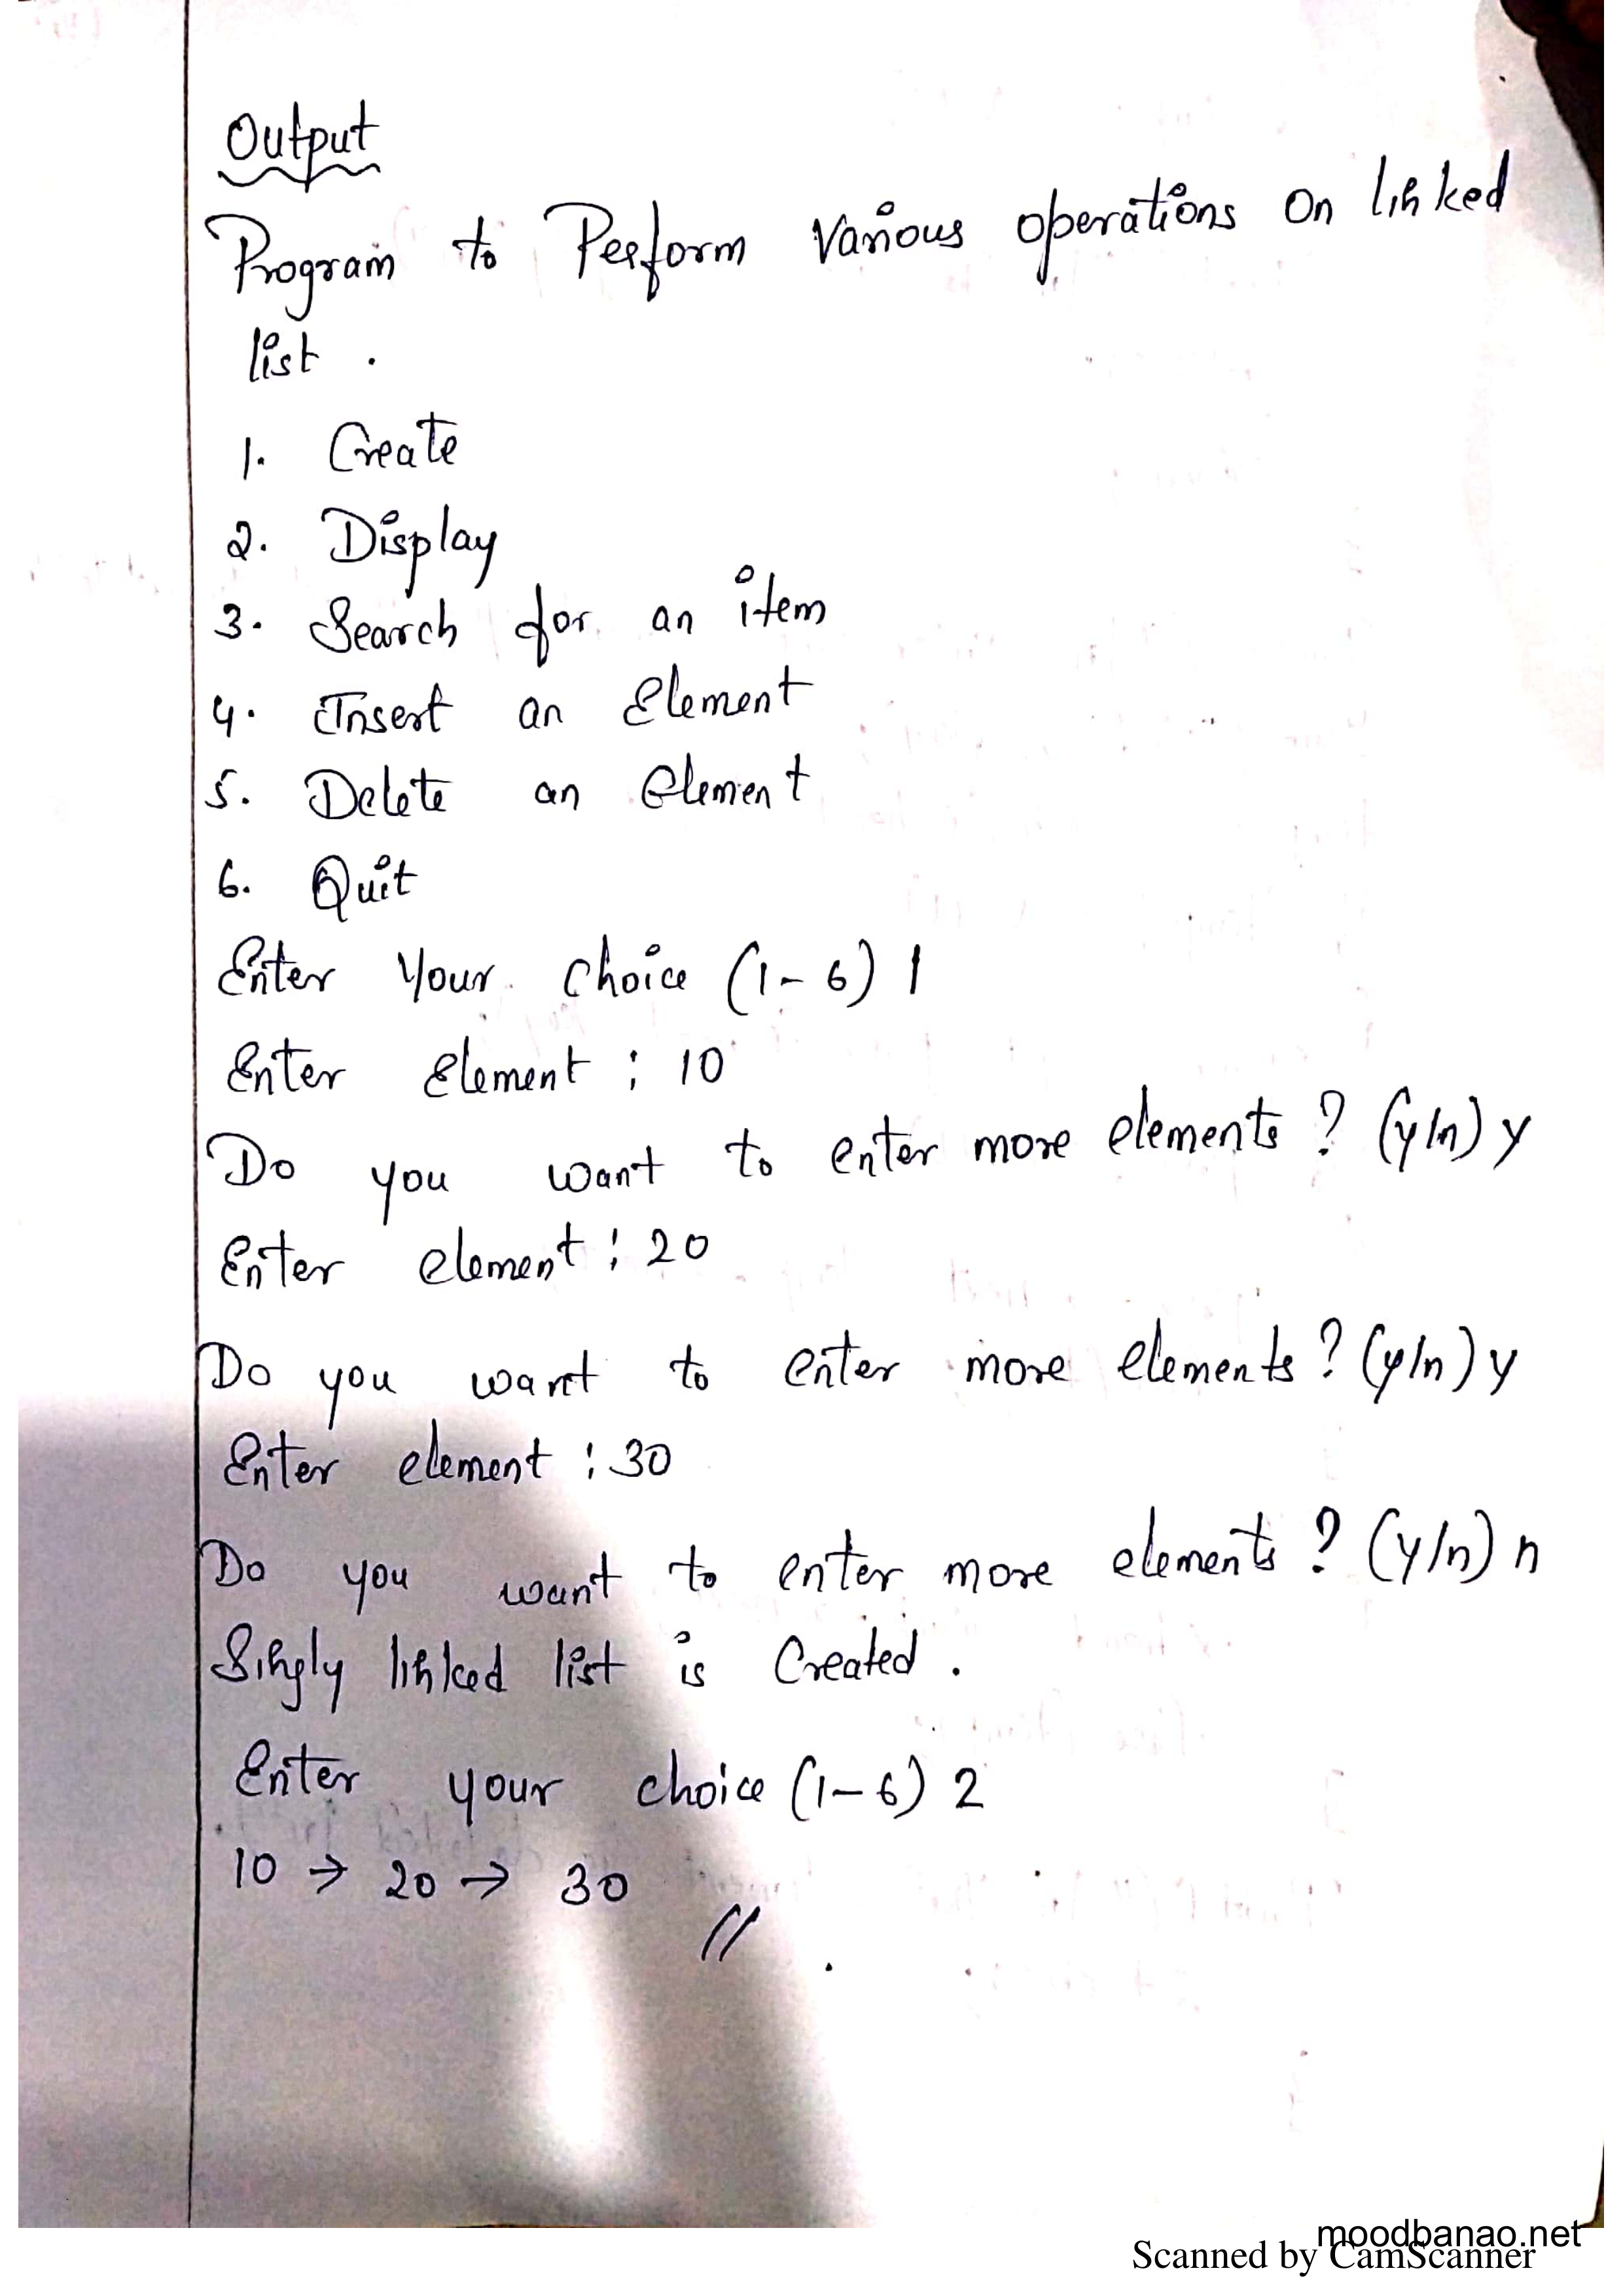 Output
Program to Perform various operations on linked
list .
1. Create
2. Display
3. Search for an item
4. Insert an Element
5. Delete an element
6. Quit
Enter Your choice (1-6) 1
Enter element : 10
Do you want to enter more elements ? (y/n) y
Enter element : 20
Do you want to enter more elements ? (y/n) y
Enter element : 30
Do you want to enter more elements ? (y/n) n
Singly linked list is Created .
Enter your choice (1-6) 2
10 → 20 → 30 //
moodbanao.net
Scanned by CamScanner